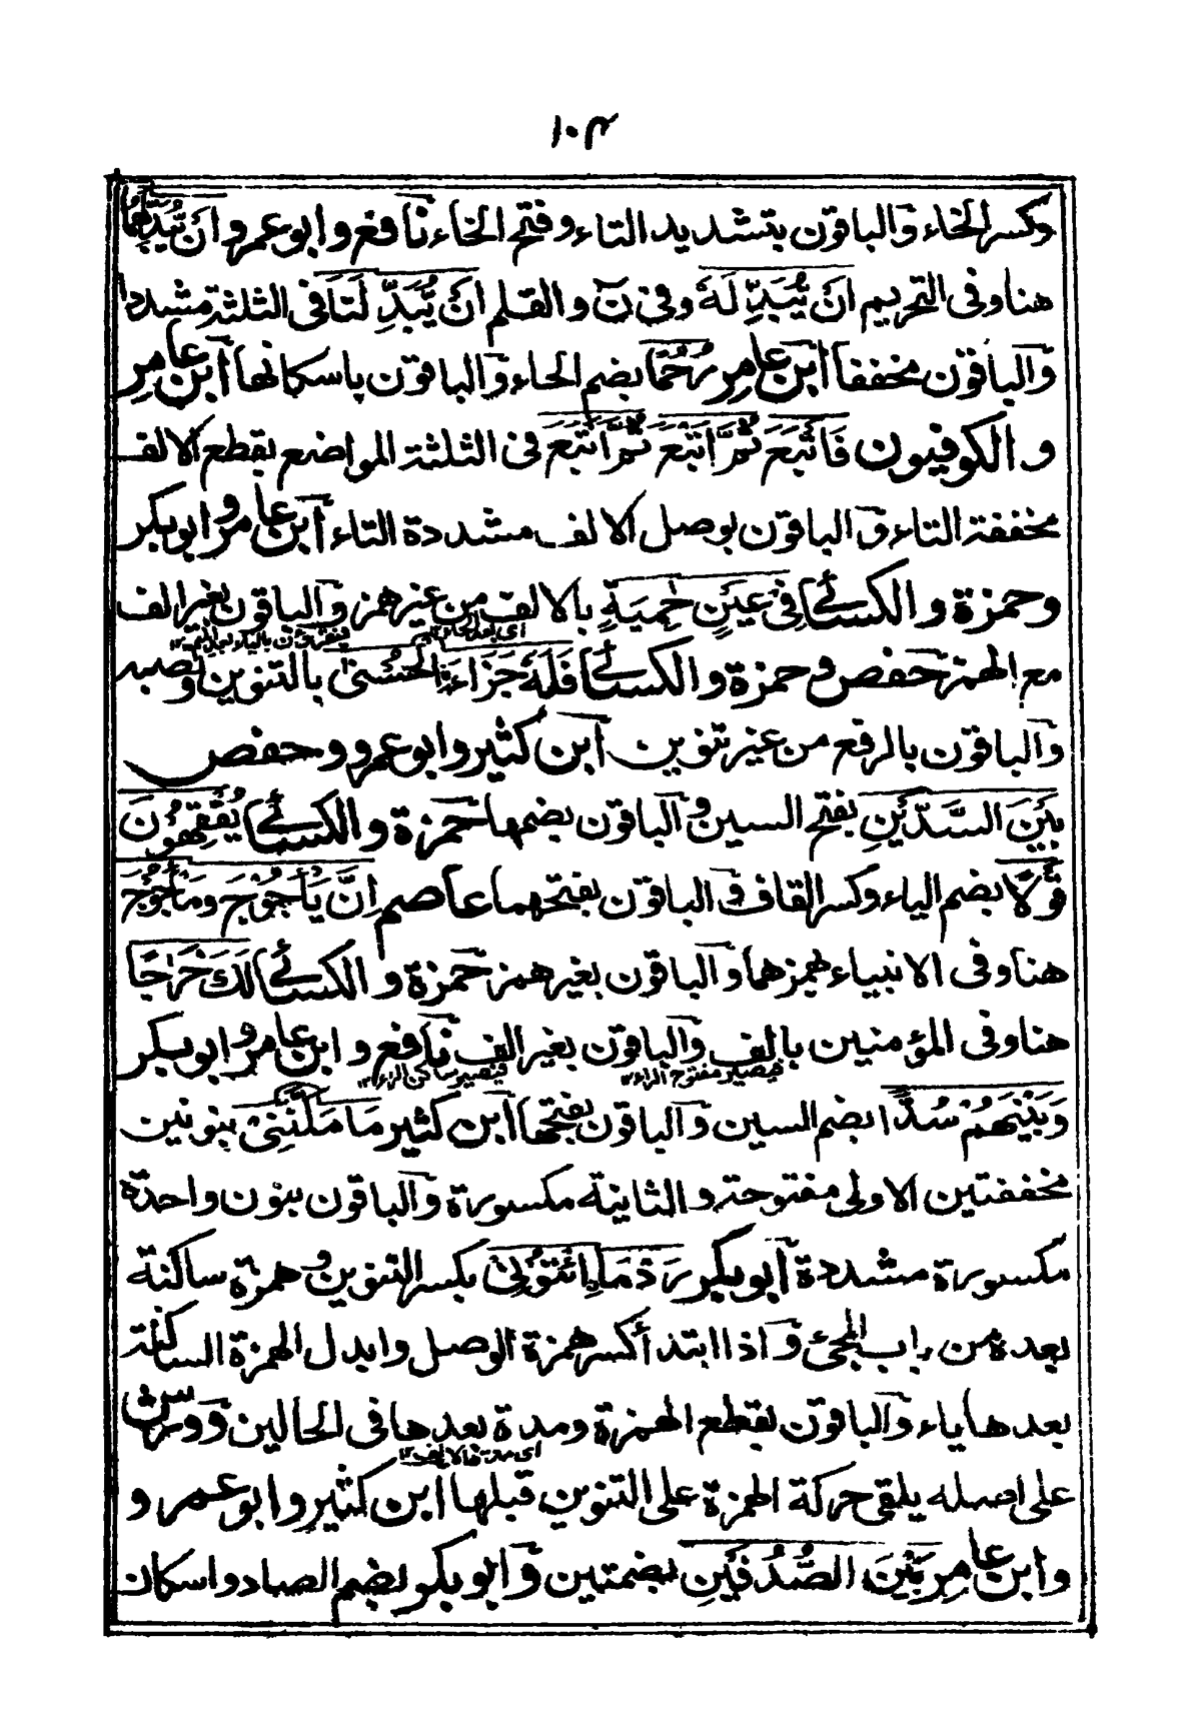 ١٠٤
وكسر الخاء والباقون بتشديد التاء وفتح الخاء نافع وابو عمرو اَنْ يُّبَدِّلَهُمَا
هنا وفى التحريم اَنْ يُّبَدِّلَهٗ وفى نٓ والقلم اَنْ يُّبَدِّلَنَا فى الثلثة مشددا
والباقون مخففا ابن عامر رُحُمًا بضم الحاء والباقون باسكانها ابن عامر
والكوفيون فَاَتْبَعَ ثُمَّ اَتْبَعَ ثُمَّ اَتْبَعَ فى الثلثة المواضع بقطع الالف
مخففة التاء والباقون بوصل الالف مشددة التاء ابن عامر وابو بكر
وحمزة والكسائى فِىْ عَيْنٍ حٰمِيَةٍ بالالف من غير همز والباقون بغير الف
اى بعد الحاء
مع الهمزة حفص وحمزة والكسائى فَلَهٗ جَزَآءَ نِ الْحُسْنٰى بالتنوين ونصبه
والباقون بالرفع من غير تنوين ابن كثير وابو عمرو وحفص
بَيْنَ السَّدَّيْنِ بفتح السين والباقون بضمها حمزة والكسائى يُفْقِهُوْنَ
قَوْلًا بضم الياء وكسر القاف والباقون بفتحهما عاصم اِنَّ يَأْجُوْجَ وَمَأْجُوْجَ
هنا وفى الانبياء بهمزهما والباقون بغير همز حمزة والكسائى لَكَ خَرَاجًا
هنا وفى المؤمنين بالف والباقون بغير الف نافع وابن عامر وابو بكر
فيصير مفتوح الراء ١٢ فيصير ساكن الراء ١٢
وَبَيْنَهُمْ سُدًّا بضم السين والباقون بفتحها ابن كثير مَا مَكَّنَنِىْ بنونين
مخففتين الاولى مفتوحة والثانية مكسورة والباقون بنون واحدة
مكسورة مشددة ابو بكر رَدْمَا نِ ائْتُوْنِىْ بكسر التنوين وهمزة ساكنة
بعده من باب المجئ واذا ابتدأ كسر همزة الوصل وابدل الهمزة الساكنة
بعدها ياء والباقون بقطع الهمزة ومدة بعدها فى الحالين وورش
على اصله يلقى حركة الهمزة على التنوين قبلها ابن كثير وابو عمرو
وابن عامر بَيْنَ الصُّدُفَيْنِ بضمتين وابو بكر بضم الصاد واسكان